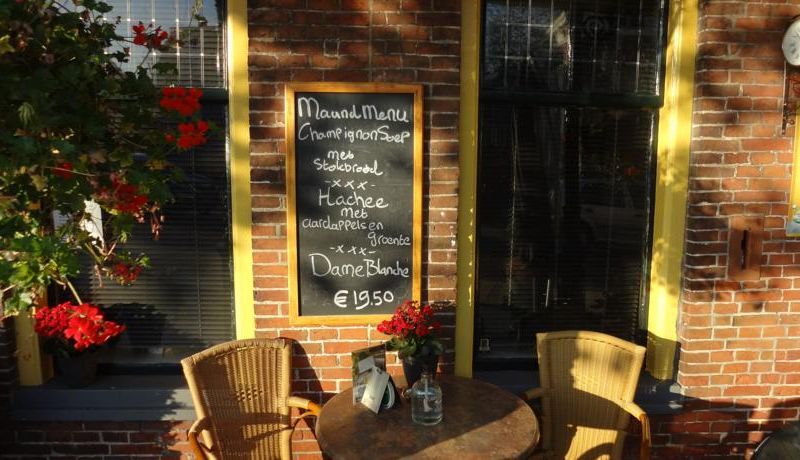 Maand Menu
Champignon Soep
met
Stokbrood
-xxx-
Hachee
met
aardappels en
groente
-xxx-
Dame Blanche
€ 19,50